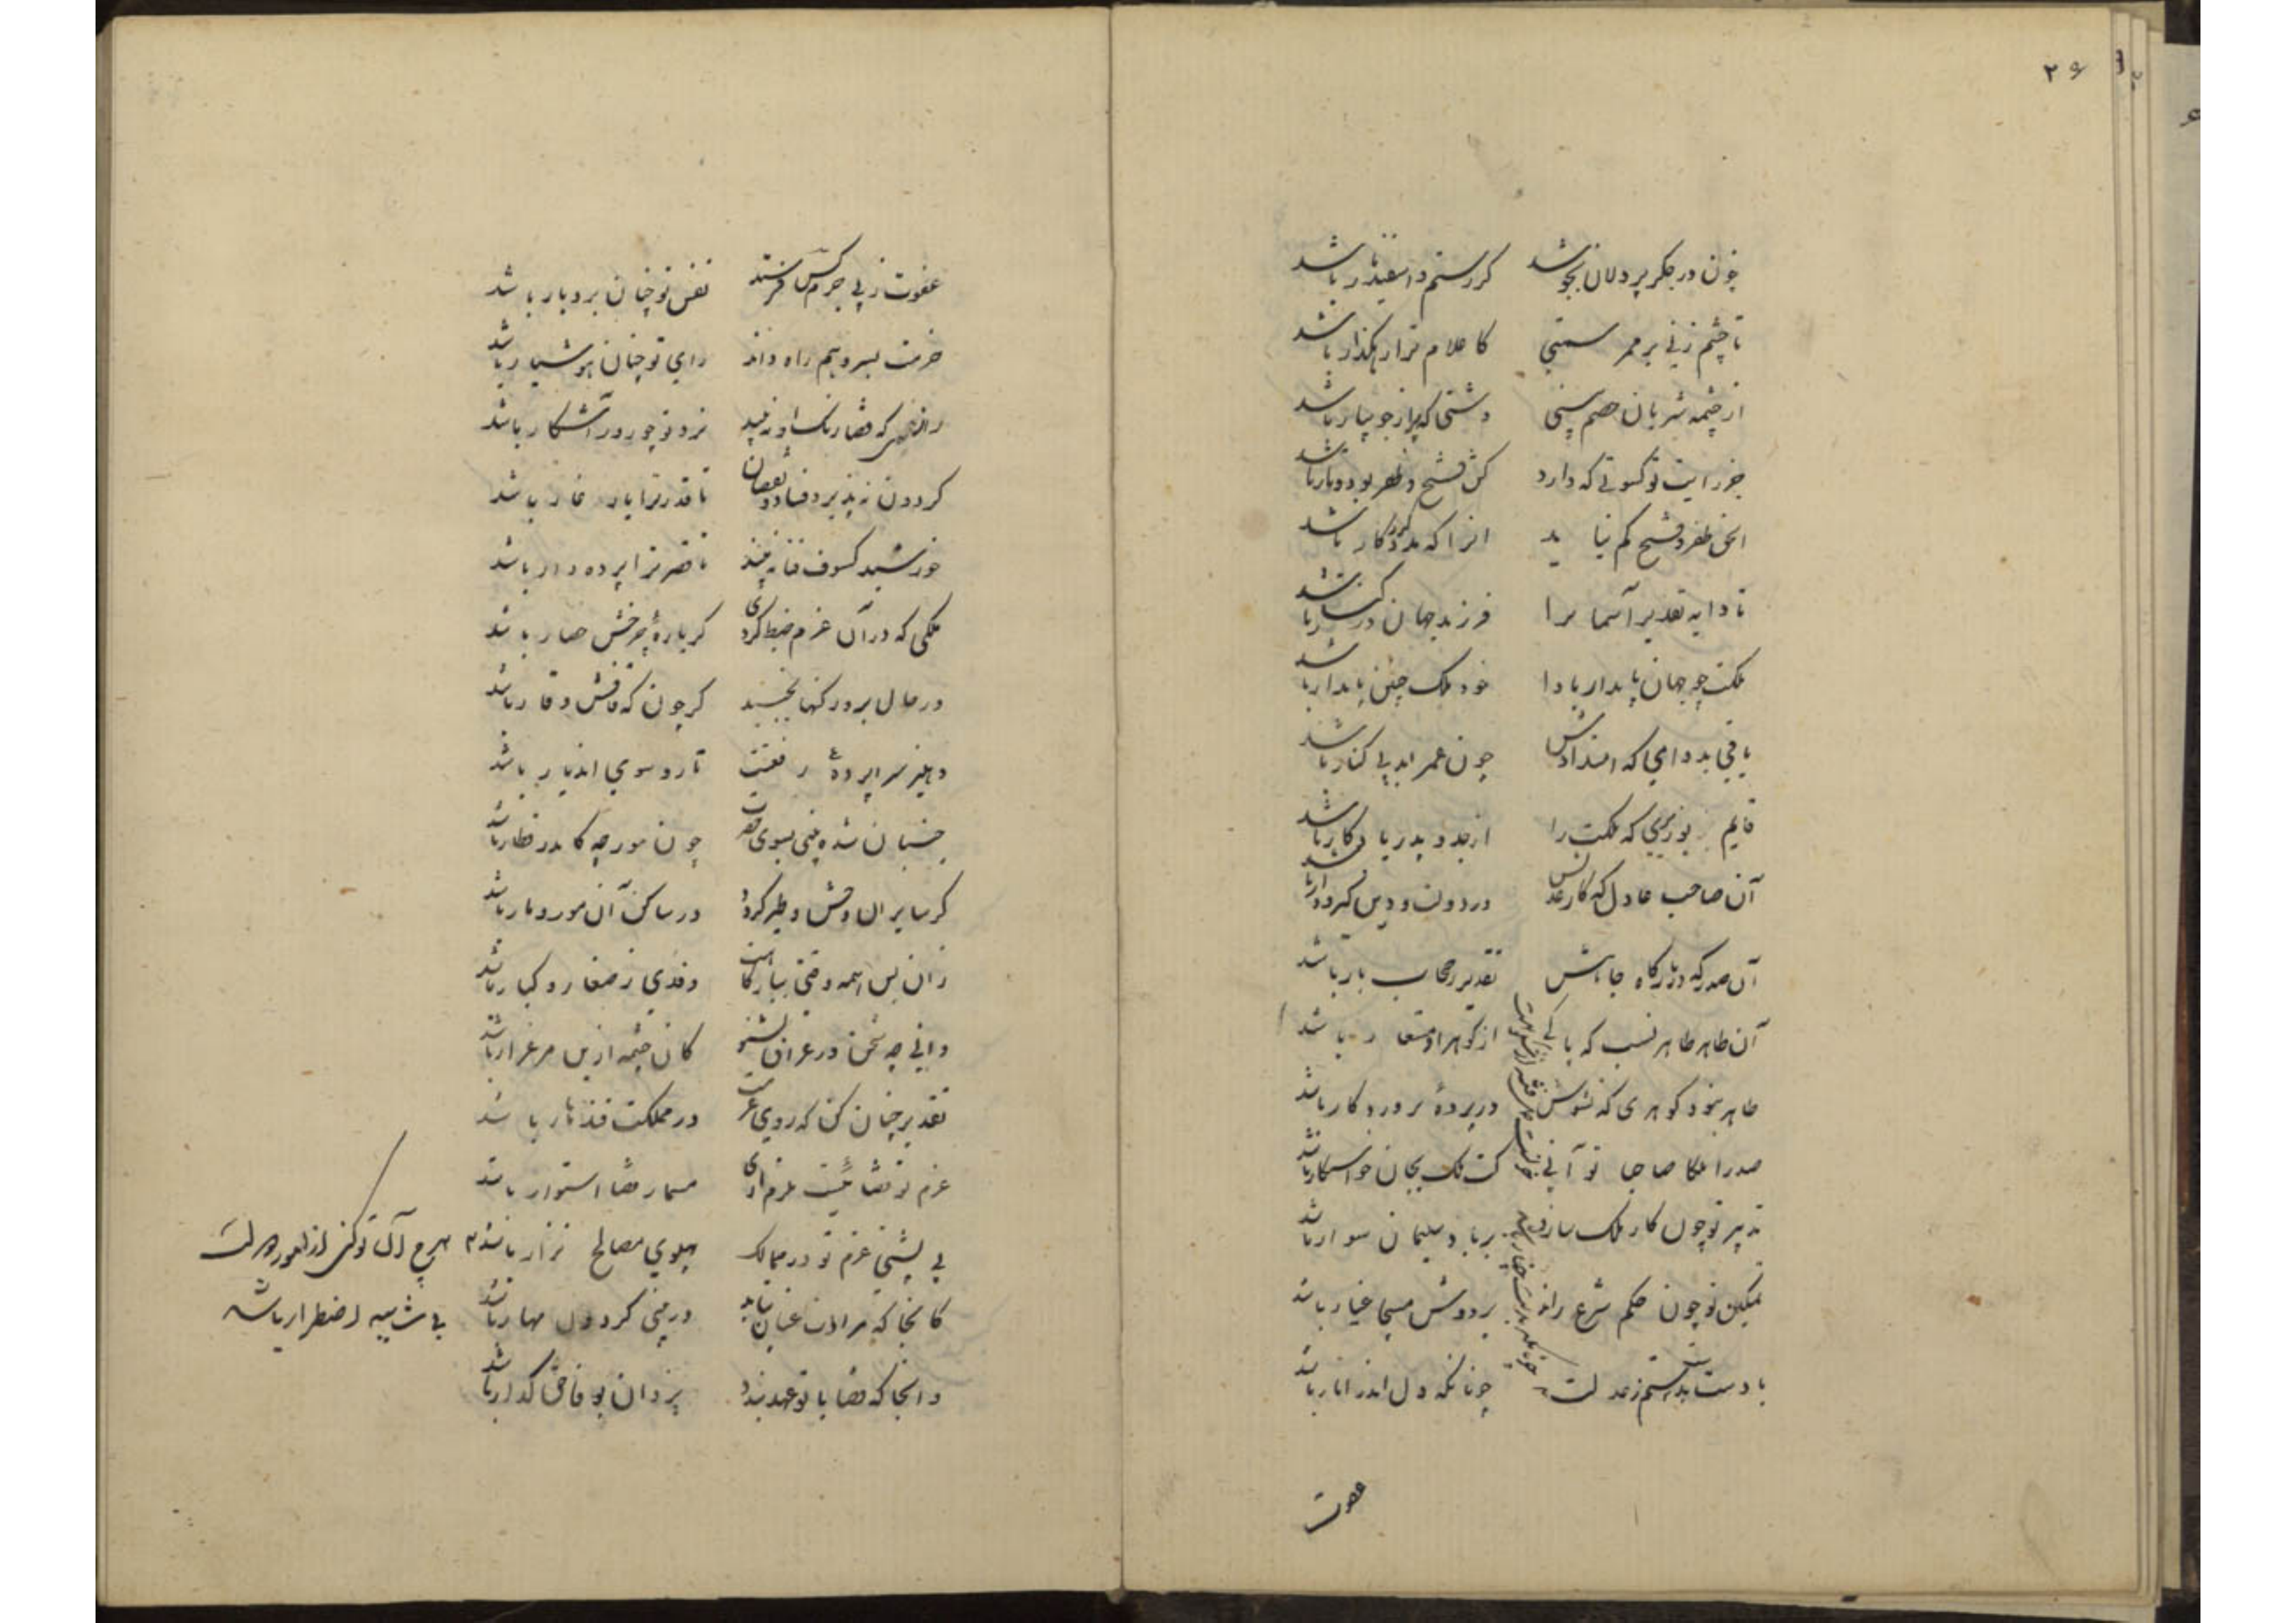 ۲۶
خون در جگر پردلان بجوشد گر رستم و اسفندیار باشد
تا چشم زنی بر ممر سمتی کاعلام ترا رهگذار باشد
از چشمه شریان خصم بینی دشتی که پر از جویبار باشد
جز رایت تو کسوتی که دارد کش فتح و ظفر پود و تار باشد
الحق ظفر و فتح کم نیاید آنرا که مدد کردگار باشد
تا دایه تقدیر آسمانرا فرزند جهان در کنار باشد
ملکت چو جهان پایدار بادا خود ملک چنین پایدار باشد
باقی بدوامی که امتدادش چون عمر ابد بی کنار باشد
قایم بوزیری که ملکت را از جد و پدر یادگار باشد
آن صاحب عادل که کار عدلش در دولت و دین گیرودار باشد
آن صدر که در بارگاه جاهش تقدیر ز حجاب بار باشد
آن طاهر طاهر نسب که پاکی از گوهر او مستعار باشد
طاهر نبود گوهری که نشوش در پردهٔ پروردگار باشد
صدرا ملکا صاحبا تو آنی کت ملک بجان خواستگار باشد
تدبیر تو چون کار ملک سازد بر باد سلیمان سوار باشد
تمکین تو چون حکم شرع راند بر دوش مسیحا غیار باشد
با دست تو دست ستم ز عدلت چونانکه دل اندر انار باشد
عفوت
عفوت ز پی جرم کس فرستد نفس تو چنان بردبار باشد
حزمت بسر وهم راه داند رای تو چنان هوشیار باشد
رازی که قضا رنگ او نبیند نزد تو چو روز آشکار باشد
گردون نپذیرد فساد و نقصان تا قدر ترا یار غار باشد
خورشید کسوف فنا نبیند تا قصر ترا پرده دار باشد
ملکی که در آن عزم ضبط کردی گر بارهٔ چرخش حصار باشد
در حال برو رکنها بجنبد گر چون که قافش وقار باشد
دهلیز سراپردهٔ رفعتت تا رو سوی آن دیار باشد
جنبان شده بینی بسوی حضرت چون مورچه کاندر قطار باشد
گر سایر آن وحش و طیر گردد در ساکن آن مور و مار باشد
زان پس همه وقتی ببارگاهت وفدی ز صغار و کبار باشد
دانی چه سخن در عراق بشنو کان چشمه ازین مرغزار باشد
تقدیر چنان کن که روی عزمت در مملکت قندهار باشد
عزم تو قضائیست مبرم آری مسمار قضا استوار باشد
بی پشتی عزم تو در ممالک پهلوی مصالح نزار باشد
هرچ آن تو کنی از امور دولت
بی شایبه اضطرار باشد
کانجا که مرادت عنان بتابد در بینی گردون مهار باشد
وانجا که قضا با تو عهد بندد یزدان بوفا حق گذار باشد